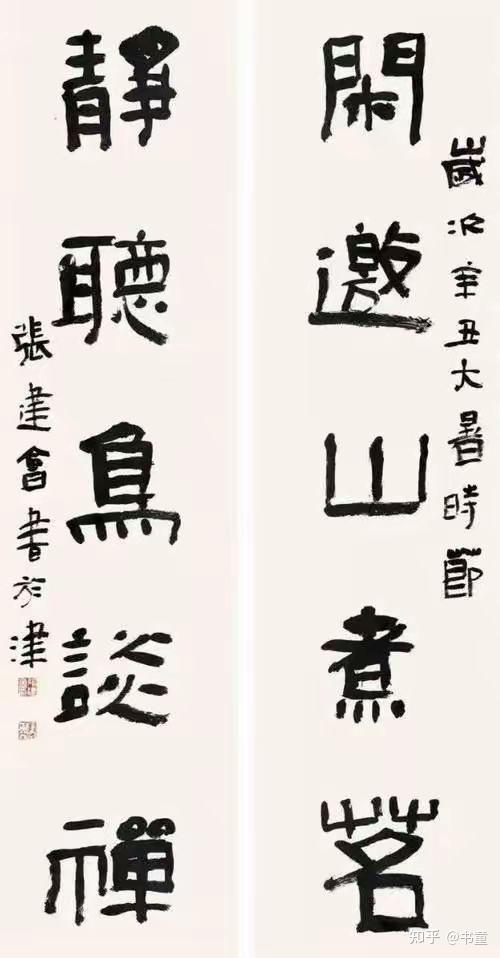 歲次辛丑大暑時節
閑邀山煮茗
靜聽鳥談禪
張建會書於津
知乎 @书童